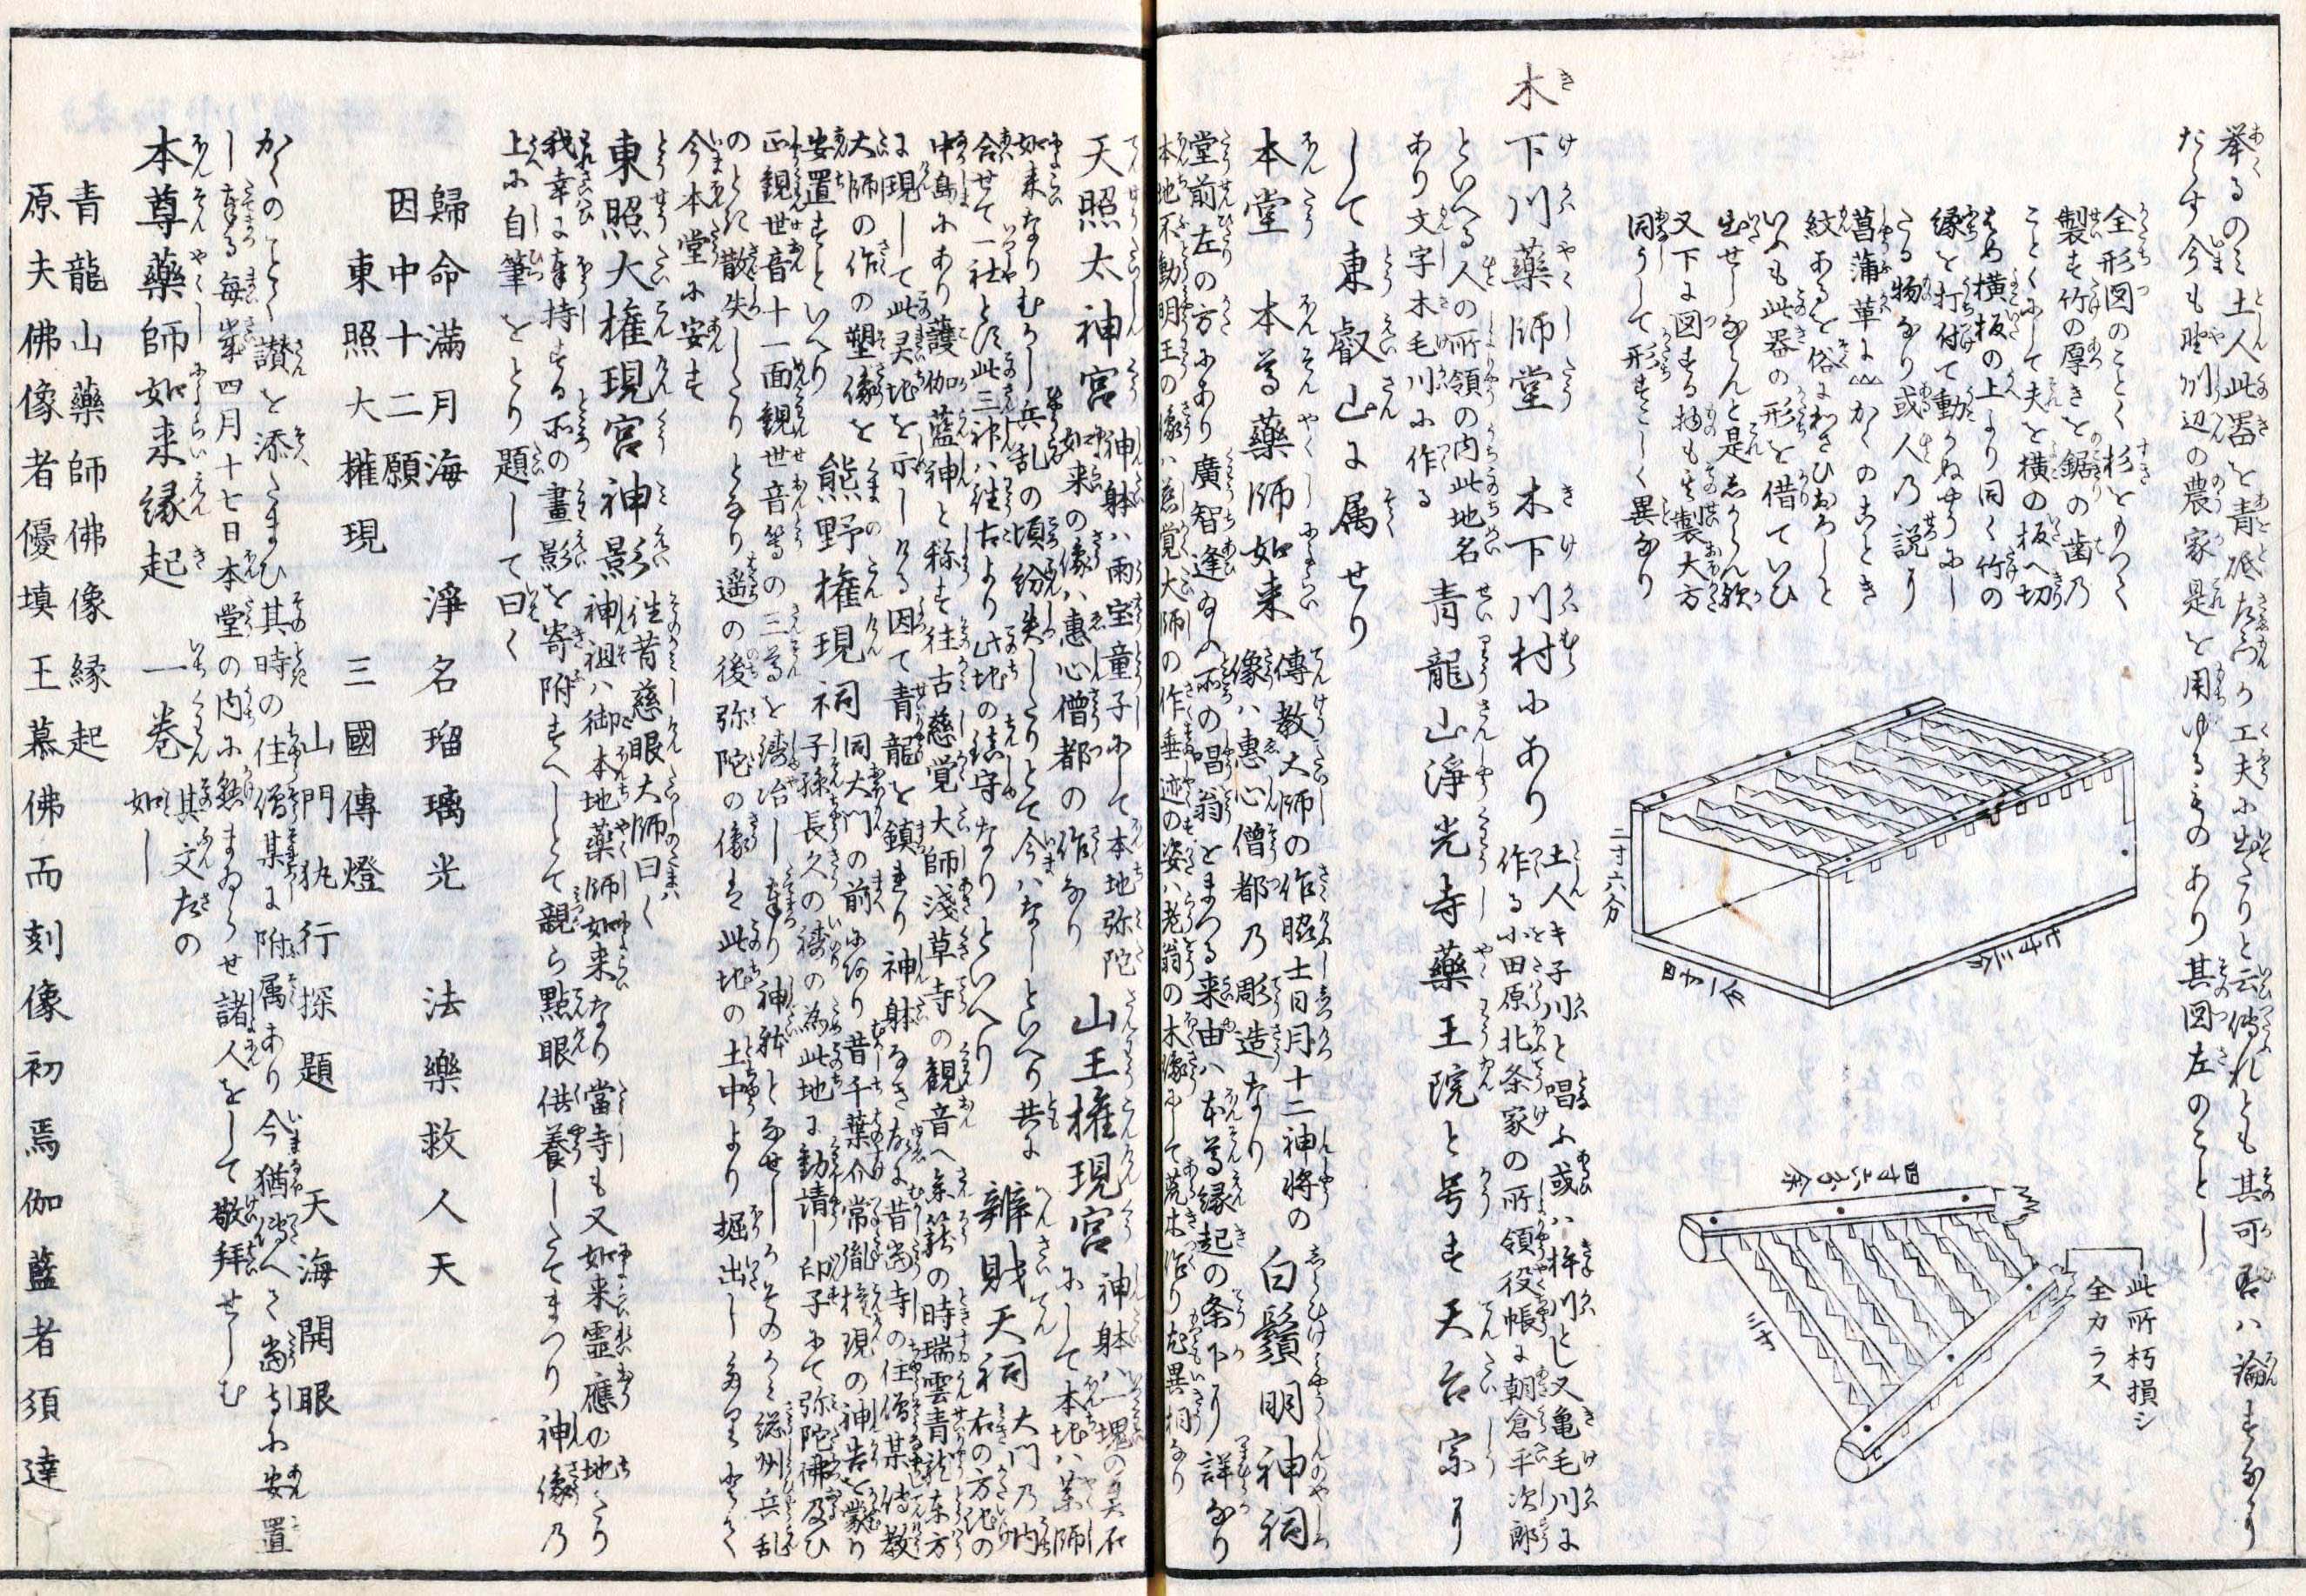 挙るのミ土人此器を青砥左衛門の工夫に出たりと云伝れとも其可否ハ論すへからす
たゝ今も野州辺の農家是を用ゆるものあり其図左のことし
全形図のことく杉をもつて
製す竹の厚きを鋸の歯乃
ことくにして夫を横の板へ切
はめ横板の上より同く竹の
縁を打付て動かぬやうにし
たる物なり或人乃説に
菖蒲革にかくのことき
紋あるを俗にわさひおろしと
いふも此器の形を借ていひ
出せしならんと是しからん歟
又下に図する物も其製大方
同うして形すこしく異なり
二寸六分
三寸
此所朽損シ
全カラス
木下川薬師堂 木下川村にあり
土人キ子川と唱ふ或ハ杵川とし又亀毛川に
作る小田原北条家の所領役帳に朝倉平次郎
といへる人の所領の内此地名
あり文字木毛川に作る
青龍山淨光寺薬王院と号す天台宗に
して東叡山に属せり
本堂 本尊薬師如来
傳教大師の作脇士日月十二神将の
像ハ恵心僧都乃彫造なり
白鬚明神祠
堂前左の方にあり廣智逢ふ所の唱翁をまつる来由ハ本尊縁起の条下に詳なり
本地不動明王の像ハ慈覚大師の作垂迹の姿ハ老翁の木像にして荒木作り尤異相なり
天照太神宮
神躰ハ雨宝童子にして本地弥陀
如来の像ハ惠心僧都の作なり
山王権現宮
神躰ハ一塊の美石
にして本地ハ薬師
如来なりむかし兵乱の頃紛失したりとて今ハなしといへり共に
合せて一社とす此三神ハ往古より此地の鎮守なりといへり
辨財天祠
大門乃内
右の方池の
中島にあり護伽藍神と称す往古慈覚大師淺草寺の観音へ参籠の時瑞雲青龍東方
に現して此灵地を示しける因て青龍を鎮まり神躰なき故に昔当寺の住僧某傳教
大師の作の塑像を
安置すといへり
熊野権現祠
同大門の前に有り昔千葉介常胤権現の神告を蒙り
子孫長久の祷の為此地に勧請し印子にて弥陀佛及ひ
正観世音十一面観世音等の三尊を鋳冶し奉り神躰となせしかそのかミ総州兵乱
のとき散失したりとなり遥の後弥陀の像を此地の土中より掘出し
今本堂に安す
東照大権現宮神影
往昔慈眼大師曰く
神祖ハ御本地薬師如来なり當寺も又如来霊應の地たり
我幸に奉持する所の畫影を寄附すへしとて親ら點眼供養したてまつり神像乃
上に自筆をとり題して曰く
歸命滿月海 淨名瑠璃光 法樂救人天
因中十二願
東照大權現 三國傳燈
山門執行探題 天海開眼
かくのことく讃を添たまひ其時の住僧某に附属あり今猶傳へて當寺に安置
し奉る毎年四月十七日本堂の内に懸まゐらせ諸人をして敬拜せしむ
本尊藥師如来縁起 一巻
其文左の
如し
青龍山藥師佛像縁起
原夫佛像者優填王慕佛而刻像初焉伽藍者須達